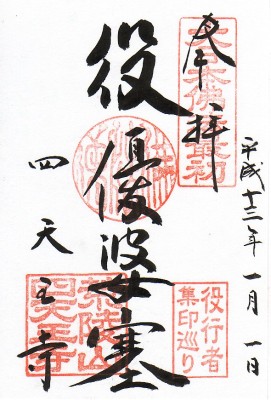 奉拝
大日本佛法最初
平成十三年一月一日
役優婆塞
役行者
集印巡り
四天王寺
荒陵山
四天王寺